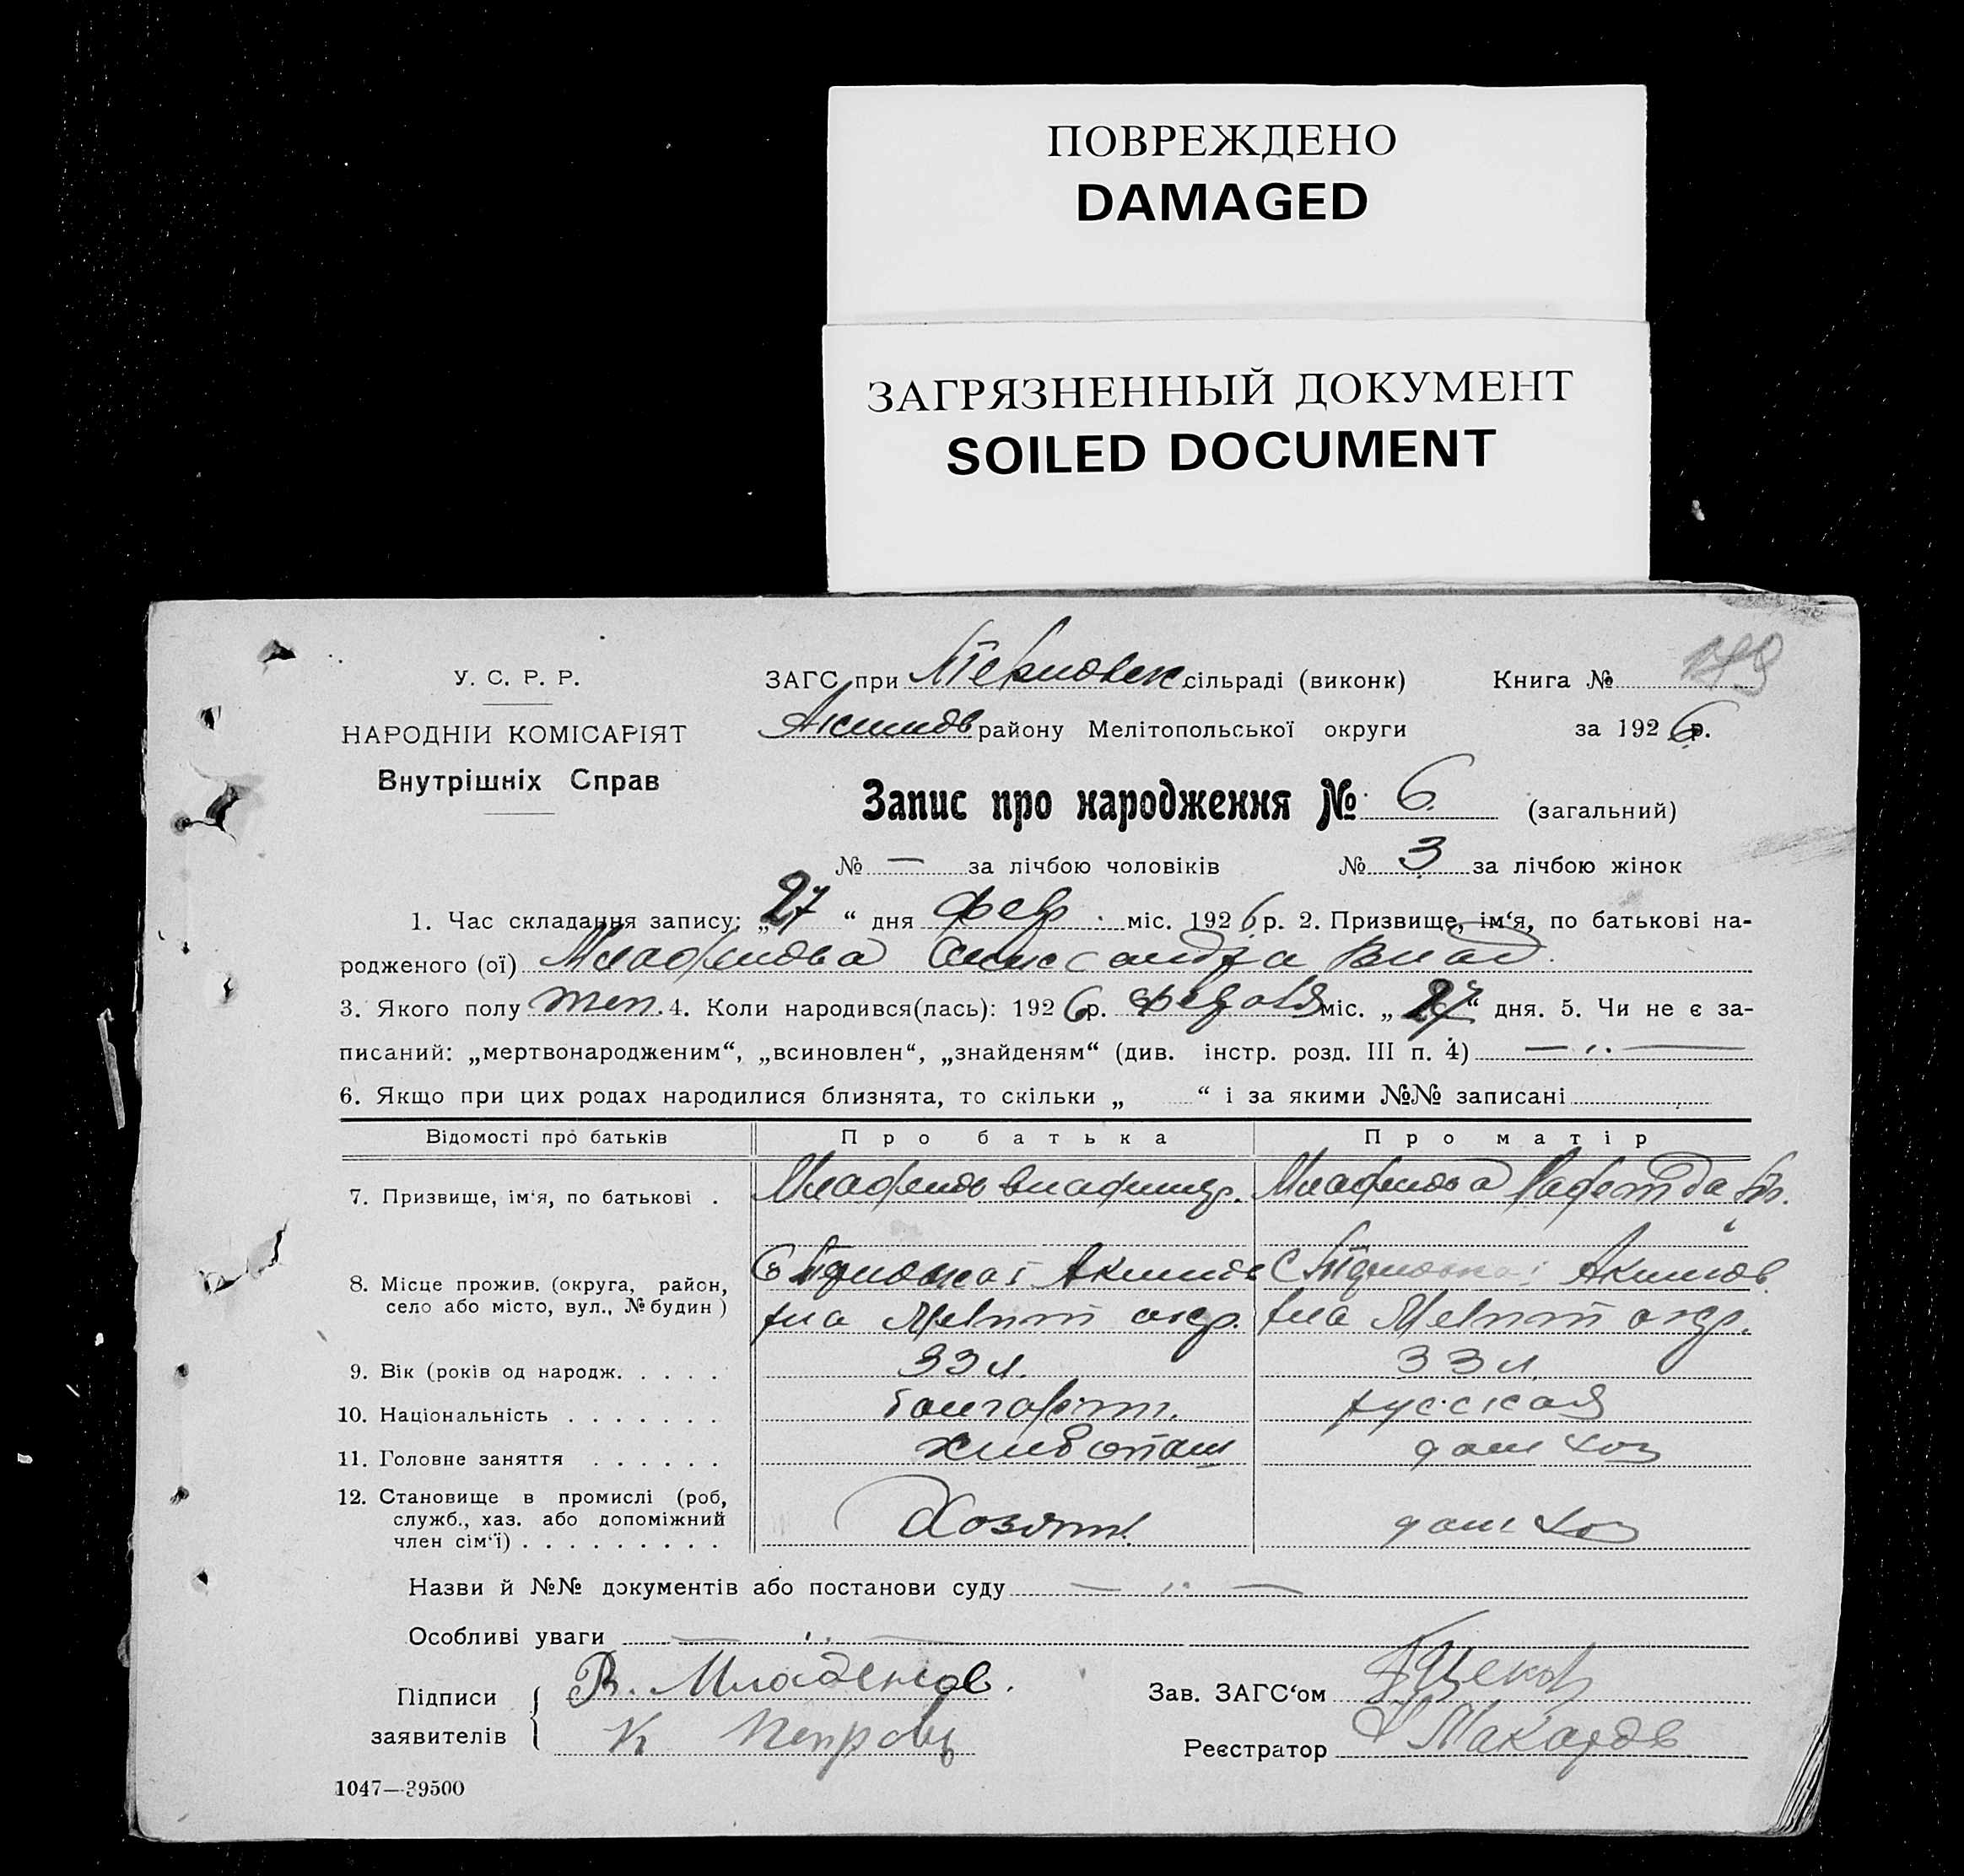 ПОВРЕЖДЕНО
DAMAGED
ЗАГРЯЗНЕННЫЙ ДОКУМЕНТ
SOILED DOCUMENT
У. С. Р. Р.
НАРОДНІЙ КОМІСАРІЯТ
Внутрішніх Справ
ЗАГС при сільраді (виконк) Книга №
Акимов району Мелітопольської округи за 1926 р.
Запис про народження № 6 (загальний)
№ — за лічбою чоловіків № 3 за лічбою жінок
1. Час складання запису: „27“ дня фев. міс. 1926 р. 2. Призвище, ім‘я, по батькові на-
родженого (ої) Младенова Александра Влад.
3. Якого полу жен. 4. Коли народився(лась): 1926 р. февраля міс. „27“ дня. 5. Чи не є за-
писаний: „мертвонародженим“, „всиновлен“, „знайденям“ (див. інстр. розд. III п. 4) — „ —
6. Якщо при цих родах народилися близнята, то скільки „ “ і за якими №№ записані
Відомості про батьків Про батька Про матір
7. Призвище, ім‘я, по батькові . Младенов Владимир. Младенова
8. Місце прожив. (округа, район, Акимов Акимов
село або місто, вул., № будин) рна Мелит окр. рна Мелит окр.
9. Вік (років од народж. . . . . 33 л. 33 л.
10. Національність . . . . . . . болгарин. русская
11. Головне заняття . . . . . . хлебопаш дом хоз
12. Становище в промислі (роб,
служб., хаз. або допоміжний
член сім‘ї) . . . . . . . . . Хозяин. дом хоз
Назви й №№ документів або постанови суду — „ —
Особливі уваги — „ —
Підписи
заявителів
В. Младенов.
К Петровъ
Зав. ЗАГС‘ом
Реєстратор Макаров
1047—39500